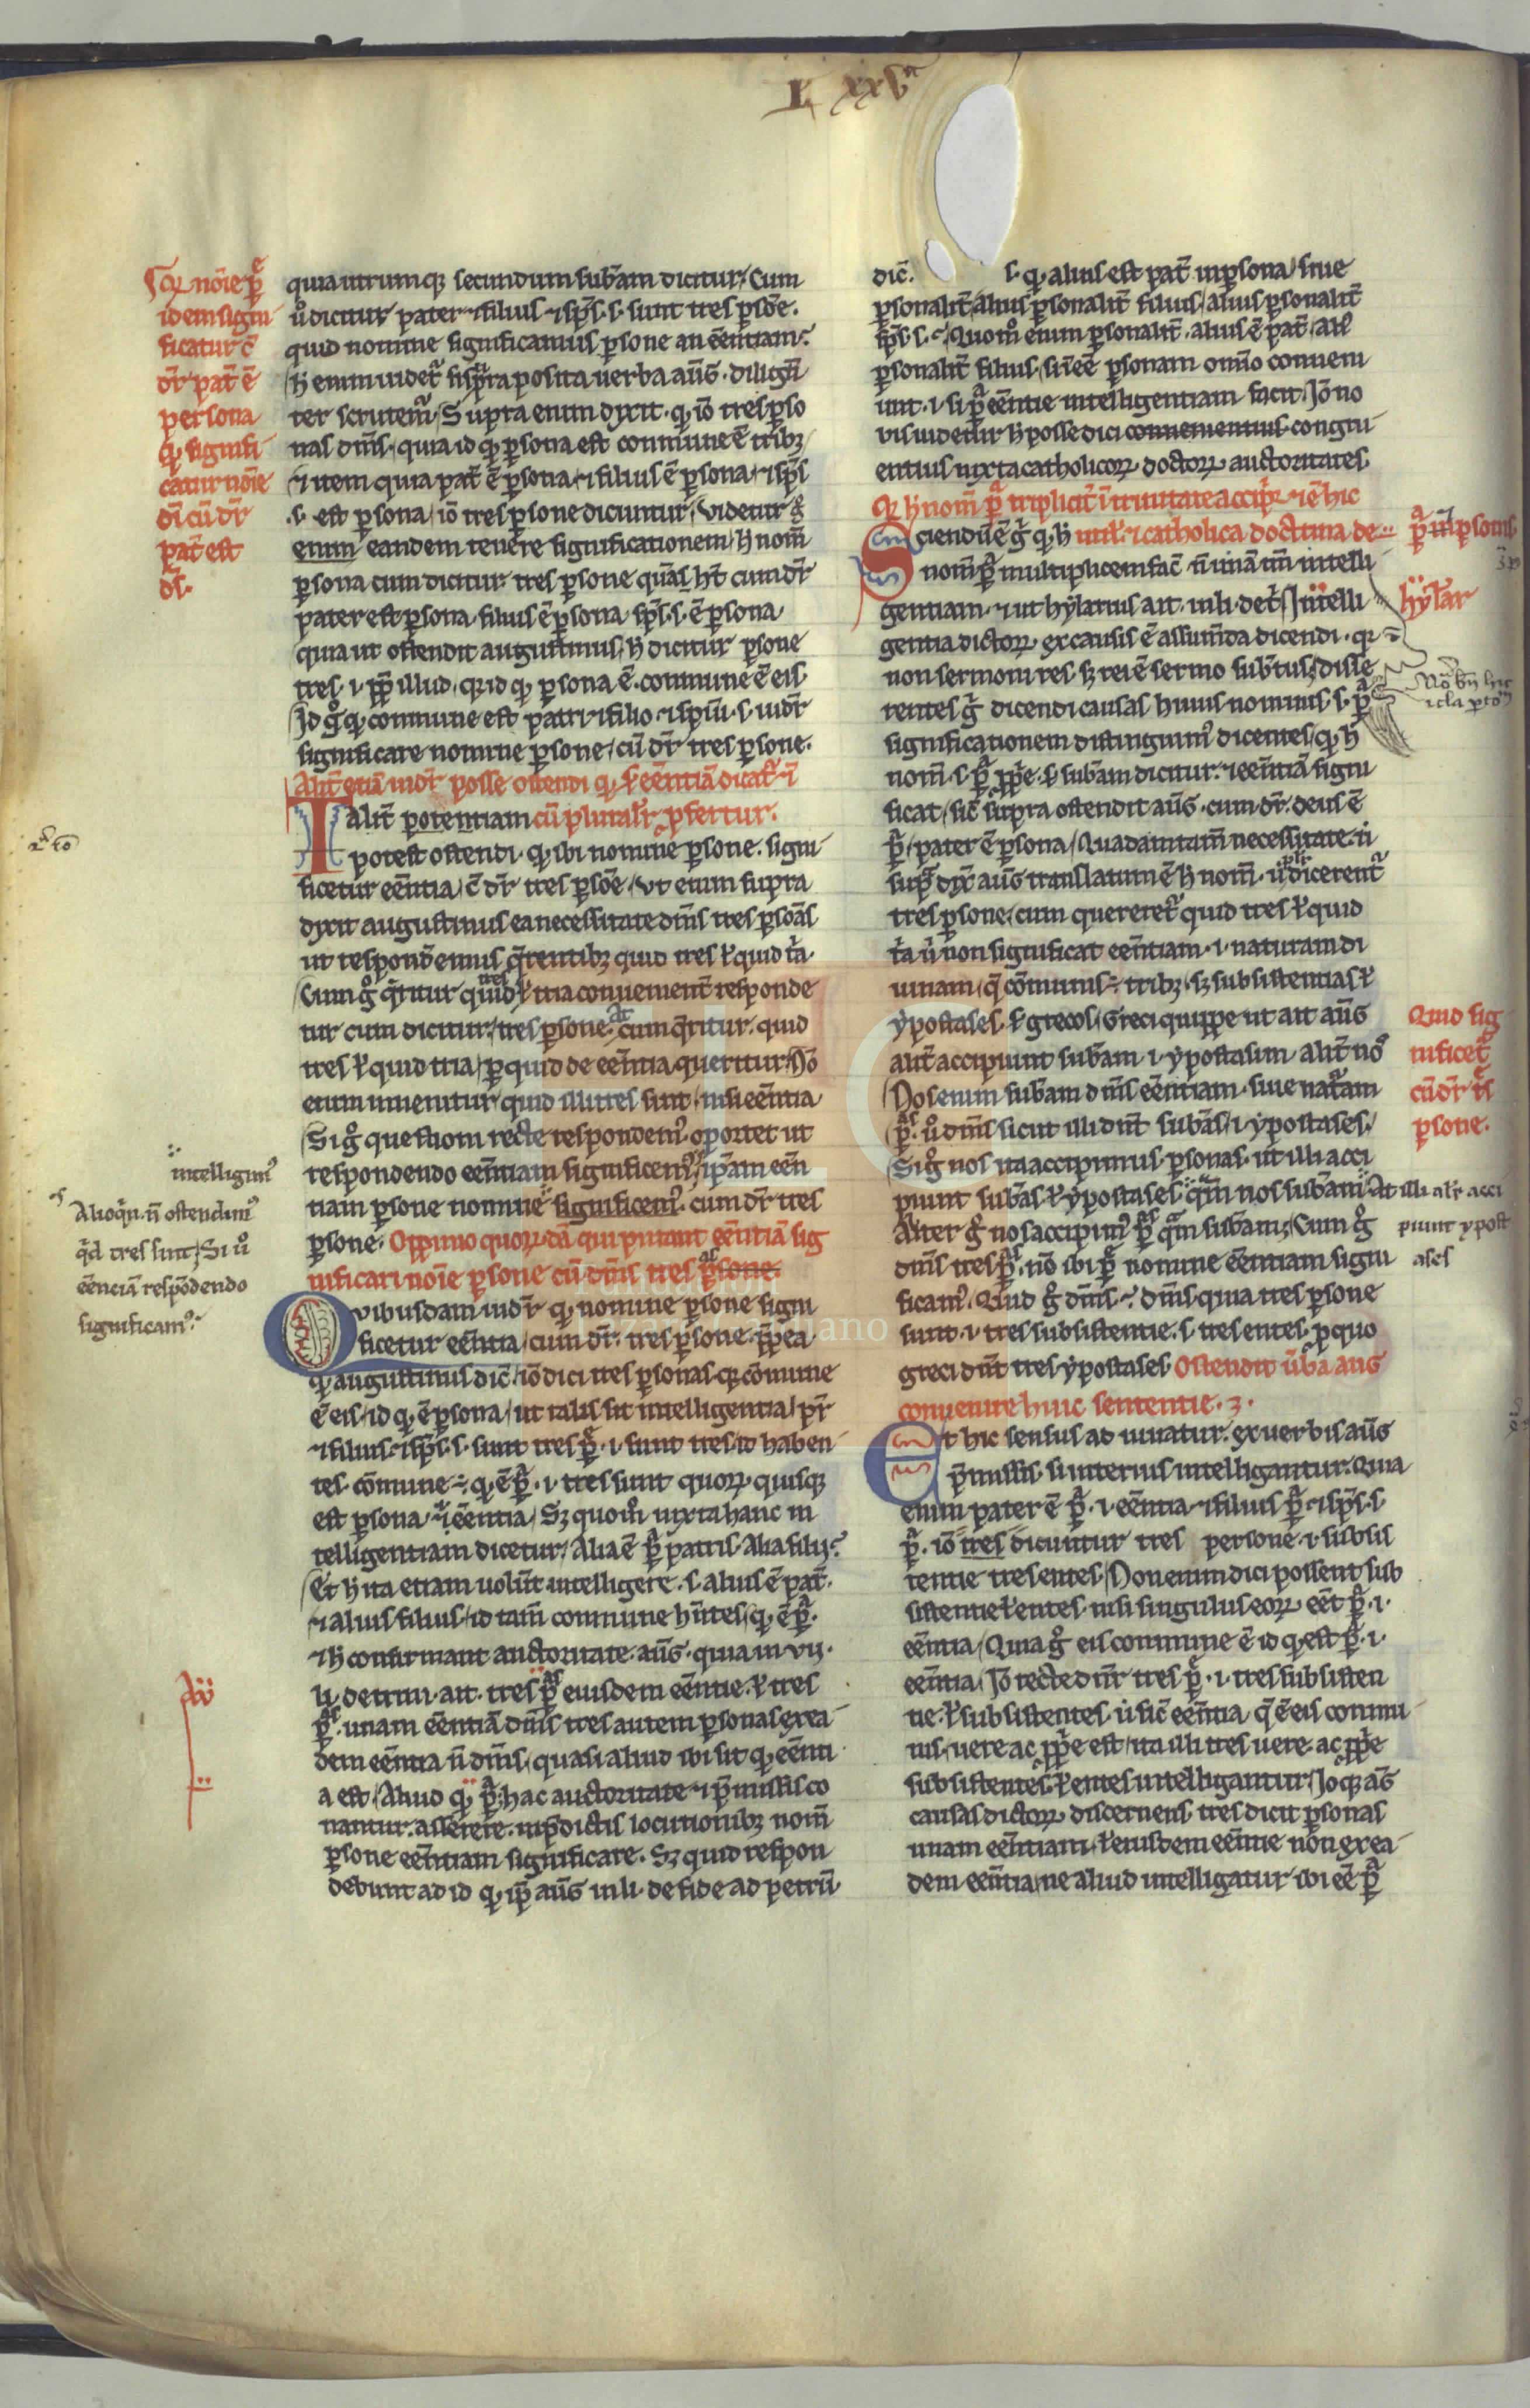 L xxvª
quia utrumqꝫ secundum subãm dicitur / Cum
ůo dicitur pater ⁊ filius ⁊ sp̃s .s. sunt tres ꝑsõe.
quid nomine significamus ꝑsone an eẽntiam?
ħ enim uidet᷑ / si sup̃ra posita uerba aũg. diligẽ
ter scrutem᷑ / Supra enim dyxit. ꝙ iõ tres ꝑso
nas dm̃s / quia id ꝙ ꝑsona est commune ẽ tribꝫ /
⁊ item quia pat̃ ẽ ꝑsona / ⁊ filius ẽ ꝑsona / ⁊ sp̃s
.s. est ꝑsona / iõ tres ꝑsone dicuntur / Videtur g̊
enim eandem tenere significationem / ħ nom̃
ꝑsona cum dicitur tres ꝑsone quãs ħt cum dr̃
pater est ꝑsona. filius ẽ ꝑsona. sp̃s .s. ẽ ꝑsona.
quia ut ostendit augustinus / ħ dicitur ꝑsone
tres .i. ꝓp̃ illud / qꝛ id ꝙ ꝑsona ẽ. commune ẽ eis
Id g̊ ꝙ commune est patri ⁊ filio ⁊ spũi .s. uidr̃
significare nomine ꝑsone / cũ dr̃ tres ꝑsone.
Alit̃ etiã uidr̃ posse ostendi ꝙ ẽ eẽntiã dicat᷑ ĩ
T alit̃ ꝑ potentiam cũ pluralr̃ ꝓfertur.
potest ostendi. ꝙ ibi nomine ꝑsone. signi
ficetur eẽntia / c̃ dr̃ tres ꝑsõe / Vt enim supra
dyxit augustinus ea necessitate dm̃s tres ꝑsõas
ut respondẽemus q̃rentibꝫ quid tres ł quid t̃a.
Cum g̊ q̃ritur quid tres ł tria conuenient̃ responde
tur cum dicitur / tres ꝑsone. At cum q̃ritur. quid
tres ł quid tria / ꝑ quid de eẽntia queritur / Nõ
enim inuenitur quid illi tres sint / nisi eẽntia
Si g̊ questioni recte respondem᷒ oportet ut
respondendo eẽntiam significem᷒ / ip̃am eẽn
tiam ꝑsone nomine significem᷒. cum dr̃ tres
ꝑsone. Oppinio quorꝫ dã qui putant eẽntiã sig
nificari noĩe ꝑsone cũ dm̃s tres ꝑsone.
Q vibusdam uidr̃ ꝙ nomine ꝑsone signi
ficetur eẽntia / cum dr̃. tres ꝑsone. ꝓp̃ ea
ꝙ augustinus dic̃ / iõ dici tres ꝑsonas qꝛ cõmune
ẽ eis / id ꝙ ẽ ꝑsona / ut talis sit intelligentia / pr̃
⁊ filius ⁊ sp̃s .s. sunt tres ꝑe .i. sunt tres id haben
tes cõmune. ꝙ ẽ ꝑa .i. tres sunt quorꝫ quisqꝫ
est ꝑsona .i. eẽntia / Sꝫ quom̊ iuxta hanc in
telligentiam dicetur / Alia ẽ ꝑa patris. Alia filij?
Et ħ ita etiam uolũt intelligere .s. alius ẽ pat̃.
⁊ alius filius / id tam̃ commune hñtes / ꝙ ẽ ꝑa.
⁊ ħ confirmant auctoritate. aũg. quia in vij.
li. de trini. ait. tres ꝑas eiusdem eẽntie. ł tres
ꝑas. unam eẽntiã dm̃s tres autem ꝑsonas ex ea
dem eẽntia ñ dm̃s / quasi aliud ibi sit ꝙ eẽnti
a est / Aliud ꝙ ꝑa. hac auctoritate ⁊ p̃missis co
nantur. asserere. in p̃dictis locutionibꝫ nom̃
ꝑsone eẽntiam significare. Sꝫ quid respon
debunt ad id ꝙ ip̃e aũg in li. de fide ad petrũ
dic̃. s. ꝙ alius est pat̃ in ꝑsona / siue
ꝑsonalit̃ / alius ꝑsonalit̃ filius / alius ꝑsonalit̃
sp̃s .s.? Quom̊ enim ꝑsonalit̃. alius ẽ pat̃. ałs
ꝑsonalit̃ filius / sĩ eẽ ꝑsonam om̃o conueni
unt .i. si ꝑa eẽntie intelligentiam facit / Iõ no
uis uidetur ħ posse dici conuenientius congru
entius iuxta catholicorꝫ doctorꝫ auctoritates
Qꝛ ħ nom̃ ꝑa triplicit̃ ĩ trinitate accip̃r ⁊ ẽ hic
S ciendũ ẽ g̊ ꝙ ħ int̃r. ⁊ catholica doctrina de.
nom̃ ꝑa multiplicem fac̃ ñ unã tm̃ intelli
gentiam. ⁊ ut hylarius ait. in li. det̃s / Intelli
gentia dictorꝫ ex causis ẽ assum̃da dicendi. qꝛ
non sermoni res. sꝫ rei ẽ sermo subt̃us / disse
rentes g̊ dicendi causas huius nominis .s. ꝑa
significationem distinguim᷒ dicentes / ꝙ ħ
nom̃ .s. ꝑa ꝓp̃e. ẽ subãm dicitur. ⁊ eẽntiã signi
ficat / sic̃ supra ostendit aũg. cum dr̃. deus ẽ
ꝑa / pater ẽ ꝑsona / Quadam tam̃ necessitate. ñ
sup̃ dyx̃ aũg translatum ẽ ħ nom̃. ut plr̃ dicerent᷑
tres ꝑsone / cum quereret᷑ quid tres ł quid
t̃a ũ non significat eẽntiam .i. naturam di
uinam / q̃ cõmunis ẽ tribꝫ / sꝫ subsistentias ł
ypostases. ẽ grecos / Greci quippe ut ait aũg
alit̃ accipiunt subãm .i. ypostasim alit̃ nos
Nos enim subãm dm̃s eẽntiam. siue natãam
ꝑas. ůo dm̃s sicut illi dnt̃ subãs .i. ypostases /
Si g̊ nos ita accipimus. ꝑsonas. ut illi acci
piunt subãs ł ypostases. q̃m nos subãm At illi alr̃ acci
piunt ypost
ases
Aliter g̊ nos accipim᷒ ꝑas q̃m subãm / Cum g̊
dm̃s tres ꝑas. nõ ibi ꝑe nomine eẽntiam signi
ficam᷒. Quid g̊ dm̃s? dm̃s quia tres ꝑsone
sunt .i. tres subsistentie .s. tres entes. ꝓ quo
greci dnt̃ tres ypostases Ostendit ũba aug
conuenire huic sententie. 3.
E t hic sensus ad iuuatur. ex uerbis aũg
p̃missis si interius intelligantur. Quia
enim pater ẽ ꝑa .i. eẽntia ⁊ filius ꝑa ⁊ sp̃s .s.
ꝑa. iõ tres dicuntur tres persone .i. subsis
tentie tres entes / Non enim dici possent sub
sistentie ł entes. nisi singulus eorꝫ eẽt ꝑa .i.
eẽntia / Quia g̊ eis commune ẽ id ꝙ est ꝑa .i.
eẽntia / Iõ recte dnr̃ tres ꝑe .i. tres subsisten
tie. ł subsistentes. ũ sic̃ eẽntia q̃ ẽ eis commu
nis / uere ac ꝓp̃e est / ita illi tres uere. ac ꝓp̃e
subsistentes. ł entes intelligantur / Ioqꝫ aũg
causas dictorꝫ discernens tres dicit ꝑsonas
unam eẽntiam / ł eiusdem eẽntie non ex ea
dem eẽntia / ne aliud intelligatur ibi eẽ ꝑa
Qꝛ noĩe ꝑe
idem signi
ficatur c̃
dr̃ pat̃ ẽ
persona
ꝙ signifi
catur noĩe
dĩ cũ dr̃
pat̃ est
ds̃.
intelligim᷒
Alioq̃n. ñ ostendim᷒
q̃d tres sint / Si ůo
eẽnciã respõdendo
significam᷒.
ꝑa in ꝑsonis
hylar
Quid sig
nificet᷑
cũ dr̃ tr̃s
ꝑsone.